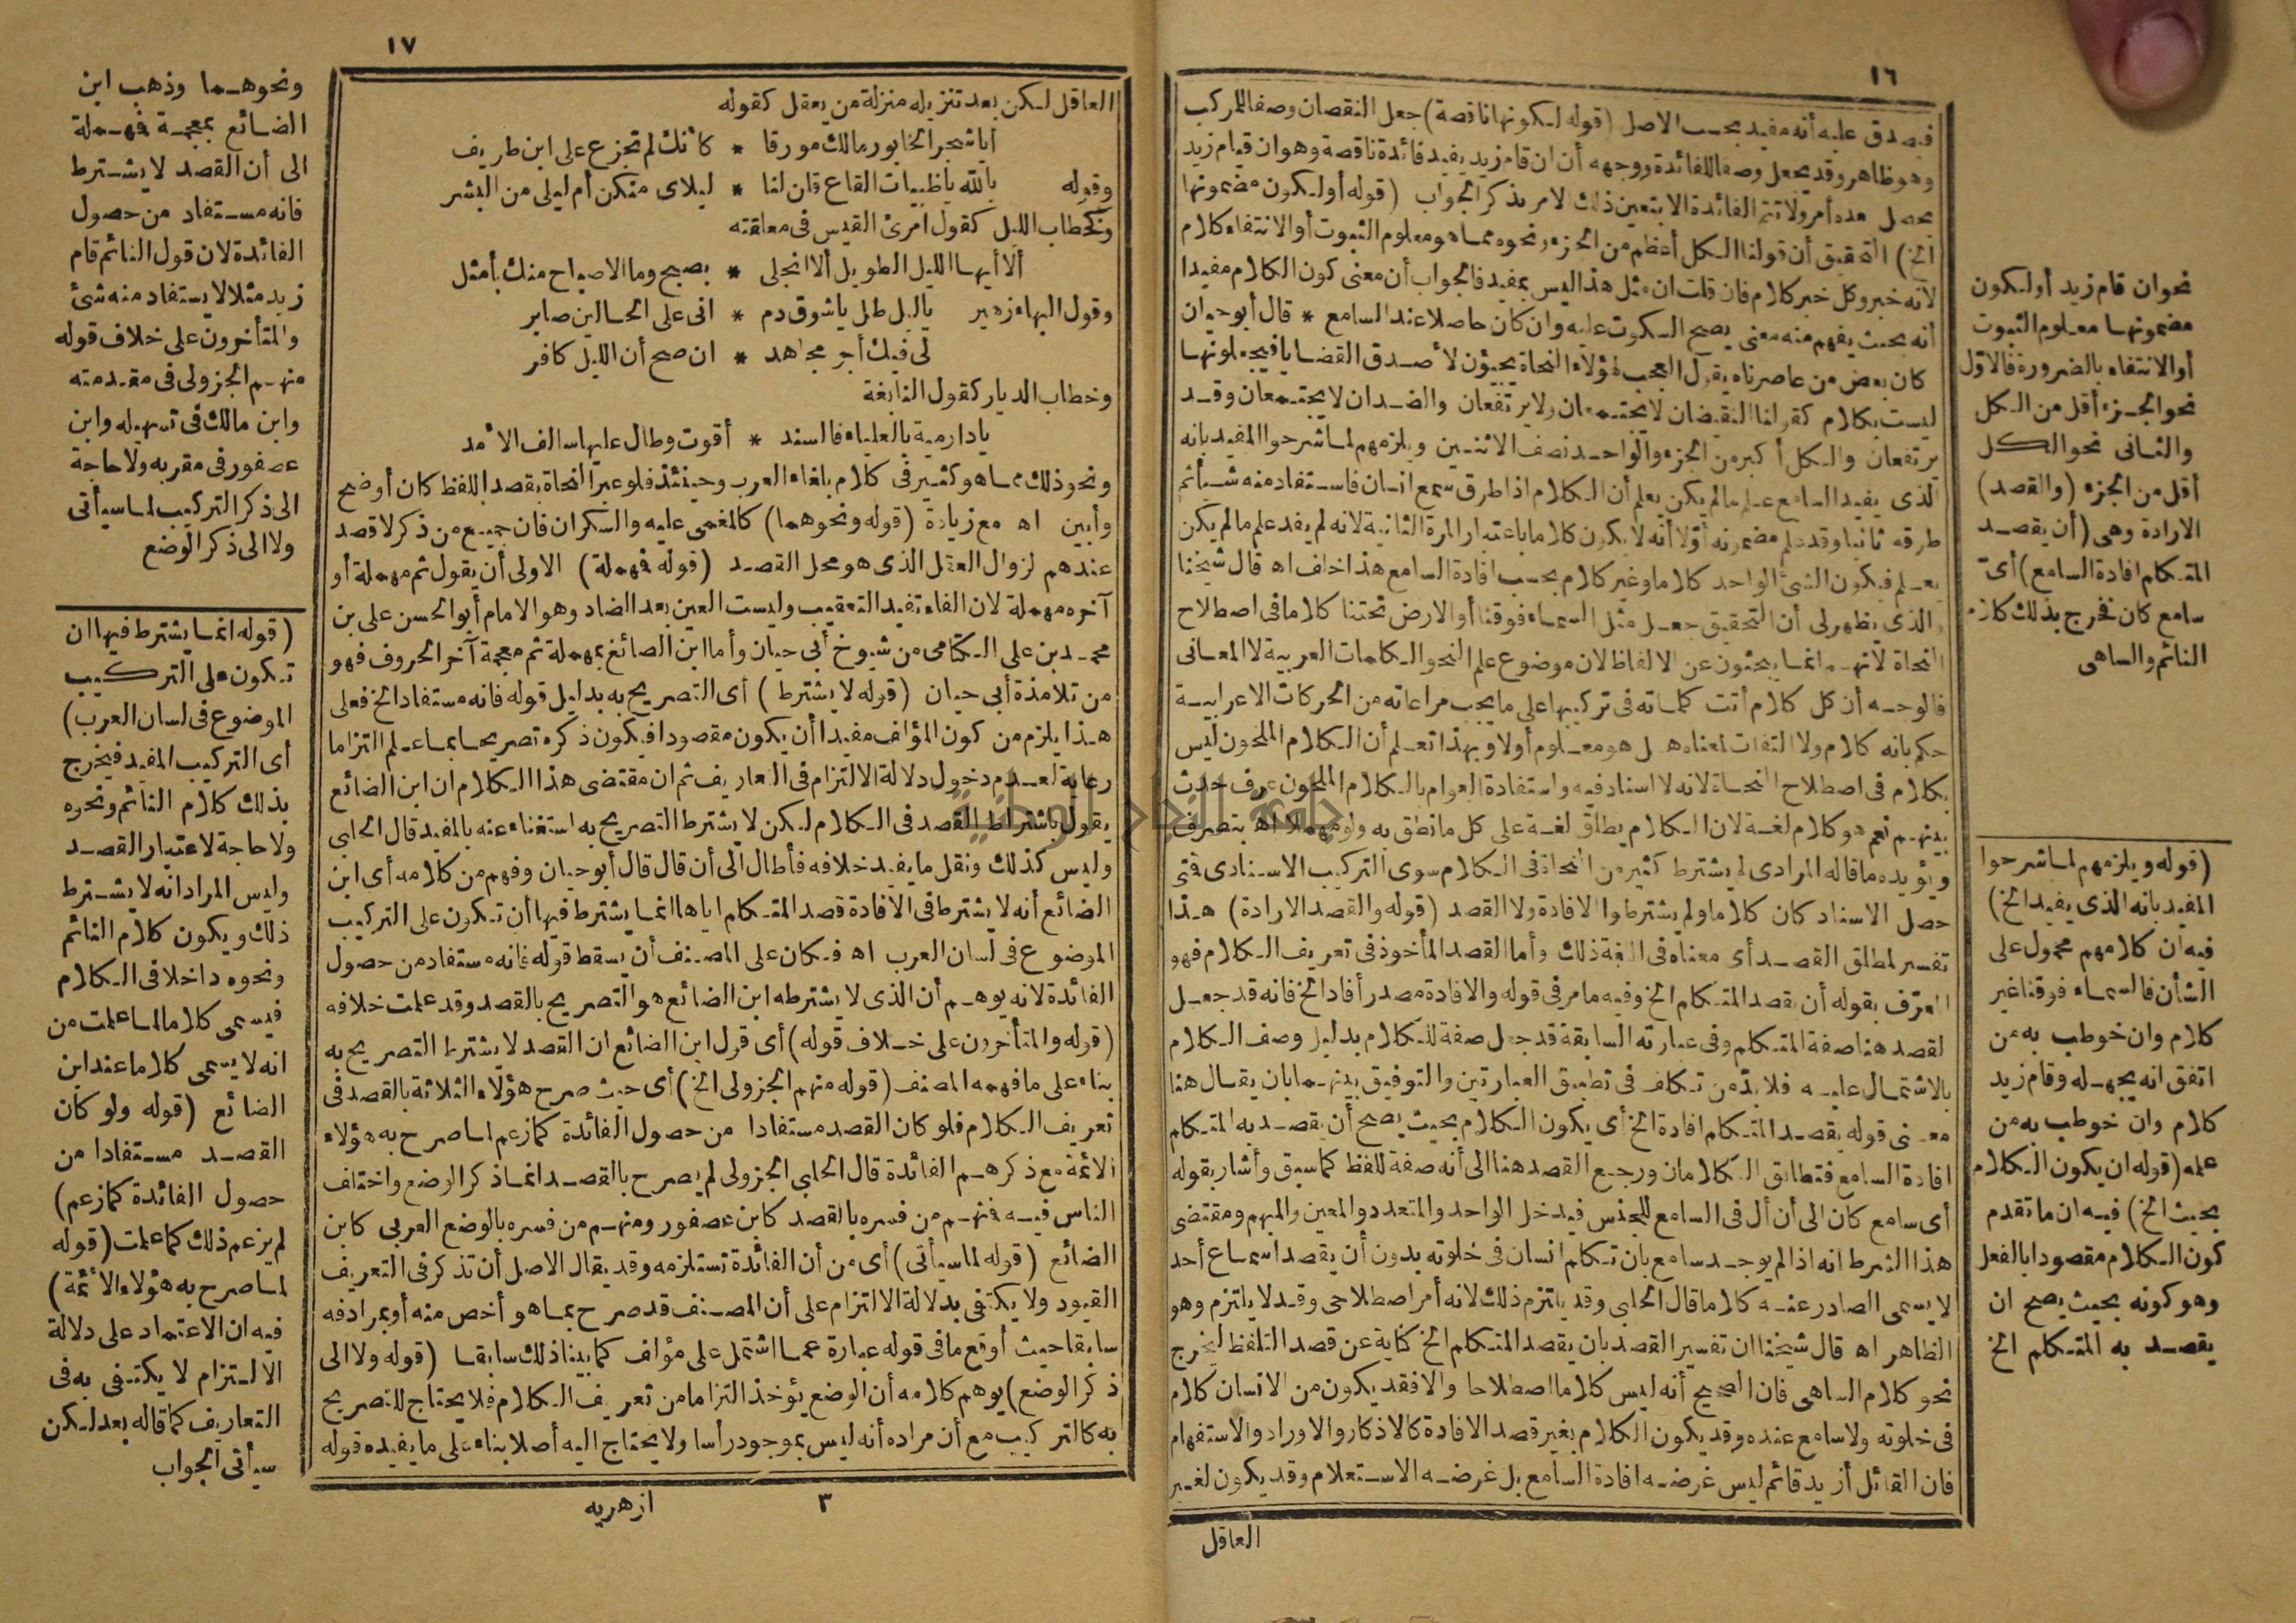 ١٦
فيصدق عليه أنه مفيد بحسب الاصل (قوله لكونها ناقصة) جعل النقصان وصفا للمركب
وهو ظاهر وقد يجعل وصفا للفائدة ووجهه أن ان قام زيد يفيد فائدة ناقصة وهو ان قيام زيد
يحصل عنده أمر ولا تتم الفائدة الا بتعين ذلك الامر بذكر الجواب (قوله أو لكون مضمونها
الخ) التحقيق أن قولنا الكل أعظم من الجزء ونحوه مما هو معلوم الثبوت أو الانتفاء كلام
لانه خبر وكل خبر كلام فان قلت ان مثل هذا ليس بمفيد فالجواب أن معنى كون الكلام مفيدا
أنه بحيث يفهم منه معنى يصح السكوت عليه وان كان حاصلا عند السامع * قال أبو حيان
كان بعض من عاصرناه يقول العجب لهؤلاء النحاة يجيؤن لأصدق القضايا فيجعلونها
ليست بكلام كقولنا النقيضان لا يجتمعان ولا يرتفعان والضدان لا يجتمعان وقد
يرتفعان والكل أكبر من الجزء والواحد نصف الاثنين ويلزمهم لما شرحوا المفيد بانه
الذى يفيد السامع علم ما لم يكن يعلم أن الكلام اذا طرق سمع انسان فاستفاد منه شيأ ثم
طرقه ثانيا وقد علم مضمونه أولا أنه لا يكون كلاما باعتبار المرة الثانية لانه لم يفد علم ما لم يكن
يعلم فيكون الشئ الواحد كلاما وغير كلام بحسب افادة السامع هذا خلف اه قال شيخنا
والذى يظهر لى أن التحقيق جعل مثل السماء فوقنا أو الارض تحتنا كلاما فى اصطلاح
النحاة لانهم انما يبحثون عن الالفاظ لان موضوع علم النحو الكلمات العربية لا المعانى
فالوجه أن كل كلام أتت كلماته فى تركيبها على ما يجب مراعاته من الحركات الاعرابية
حكم بانه كلام ولا التفات لمعناه هل هو معلوم أولا وبهذا تعلم أن الكلام الملحون ليس
بكلام فى اصطلاح النحاة لانه لا اسناد فيه واستفادة العوام بالكلام الملحون عرف حدث
بينهم نعم هو كلام لغة لان الكلام يطلق لغة على كل ما نطق به ولو مهملا اه بتصرف
ويؤيده ما قاله المرادى لم يشترط كثير من النحاة فى الكلام سوى التركيب الاسنادى فتى
حصل الاسناد كان كلاما ولم يشترطوا الافادة ولا القصد (قوله والقصد الارادة) هذا
تفسير لمطلق القصد أى معناه فى اللغة ذلك وأما القصد المأخوذ فى تعريف الكلام فهو
المعرف بقوله أن يقصد المتكلم الخ وفيه ما مر فى قوله والافادة مصدر أفاد الخ فانه قد جعل
لقصد هنا صفة المتكلم وفى عبارته السابقة قد جعل صفة للكلام بدليل وصف الكلام
بالاشتمال عليه فلا بد من تكلف فى تطبيق العبارتين والتوفيق بينهما بان يقال هنا
معنى قوله يقصد المتكلم افادة الخ أى يكون الكلام بحيث يصح أن يقصد به المتكلم
افادة السامع فتطابق الكلامان ورجع القصد هنا الى أنه صفة للفظ كما سبق وأشار بقوله
أى سامع كان الى أن أل فى السامع للجنس فيدخل الواحد والمتعدد والمعين والمبهم ومقتضى
هذا الشرط انه اذا لم يوجد سامع بان تكلم انسان فى خلوته بدون أن يقصد اسماع أحد
لا يسمى الصادر عنه كلاما قال الحلبى وقد يلتزم ذلك لانه أمر اصطلاحى وقد لا يلتزم وهو
الظاهر اه قال شيخنا ان تفسير القصد بان يقصد المتكلم الخ كناية عن قصد التلفظ ليخرج
نحو كلام الساهى فان الصحيح أنه ليس كلاما اصطلاحا والا فقد يكون من الانسان كلام
فى خلوته ولا سامع عنده وقد يكون الكلام بغير قصد الافادة كالاذكار والاوراد والاستفهام
فان القائل أزيد قائم ليس غرضه افادة السامع بل غرضه الاستعلام وقد يكون لغير
العاقل
نحو ان قام زيد أو لكون
مضمونها معلوم الثبوت
أو الانتفاء بالضرورة فالاول
نحو الجزء أقل من الكل
والثانى نحو الكل
أقل من الجزء (والقصد)
الارادة وهى (أن يقصد
المتكلم افادة السامع) أى
سامع كان فخرج بذلك كلام
النائم والساهى
(قوله ويلزمهم لما شرحوا
المفيد بانه الذى يفيد الخ)
فيه ان كلامهم محمول على
الشأن فالسماء فوقنا غير
كلام وان خوطب به من
اتفق انه يجهله وقام زيد
كلام وان خوطب به من
علمه (قوله ان يكون الكلام
بحيث الخ) فيه ان ما تقدم
كون الكلام مقصودا بالفعل
وهو كونه بحيث يصح ان
يقصد به المتكلم الخ
١٧
العاقل لكن بعد تنزيله منزلة من يعقل كقوله
أيا شجر الخابور مالك مورقا * كأنك لم تجزع على ابن طريف
وقوله بالله يا ظبيات القاع قلن لنا * ليلاى منكن أم ليلى من البشر
وكخطاب الليل كقول امرئ القيس فى معلقته
ألا أيها الليل الطويل ألا انجلى * بصبح وما الاصباح منك بأمثل
وقول البهاء زهير يا ليل طل يا شوق دم * انى على الحالين صابر
لى فيك أجر مجاهد * ان صح أن الليل كافر
وخطاب الديار كقول النابغة
يا دارمية بالعلياء فالسند * أقوت وطال عليها سالف الأمد
ونحو ذلك مما هو كثير فى كلام بلغاء العرب وحينئذ فلو عبر النحاة بقصد اللفظ كان أوضح
وأبين اه مع زيادة (قوله ونحوهما) كالمغمى عليه والسكران فان جميع من ذكر لا قصد
عندهم لزوال العقل الذى هو محل القصد (قوله فهملة) الاولى أن يقول ثم مهملة أو
آخره مهملة لان الفاء تفيد التعقيب وليست العين بعد الضاد وهو الامام أبو الحسن على بن
محمد بن على الكتامى من شيوخ أبى حيان وأما ابن الصائغ بمهملة ثم معجمة آخر الحروف فهو
من تلامذة أبى حيان (قوله لا يشترط) أى التصريح به بدليل قوله فانه مستفاد الخ فعلى
هذا يلزم من كون المؤلف مفيدا أن يكون مقصودا فيكون ذكره تصريحا بما علم التزاما
رعاية لعدم دخول دلالة الالتزام فى التعاريف ثم ان مقتضى هذا الكلام ان ابن الضائع
يقول باشتراط القصد فى الكلام لكن لا يشترط التصريح به استغناء عنه بالمفيد قال الحلبى
وليس كذلك ونقل ما يفيد خلافه فأطال الى أن قال قال أبو حيان وفهم من كلامه أى ابن
الضائع أنه لا يشترط فى الافادة قصد المتكلم اياها انما يشترط فيها أن تكون على التركيب
الموضوع فى لسان العرب اه فكان على المصنف أن يسقط قوله فانه مستفاد من حصول
الفائدة لانه يوهم أن الذى لا يشترطه ابن الضائع هو التصريح بالقصد وقد علمت خلافه
(قوله والمتأخرون على خلاف قوله) أى قول ابن الضائع ان القصد لا يشترط التصريح به
بناء على ما فهمه المصنف (قوله منهم الجزولى الخ) أى حيث صرح هؤلاء الثلاثة بالقصد فى
تعريف الكلام فلو كان القصد مستفادا من حصول الفائدة كما زعم لما صرح به هؤلاء
الائمة مع ذكرهم الفائدة قال الحلبى الجزولى لم يصرح بالقصد انما ذكر الوضع واختلف
الناس فيه فنهم من فسره بالقصد كابن عصفور ومنهم من فسره بالوضع العربى كابن
الضائع (قوله لما سيأتى) أى من أن الفائدة تستلزمه وقد يقال الاصل أن تذكر فى التعريف
القيود ولا يكتفى بدلالة الالتزام على أن المصنف قد صرح بما هو أخص منه أو بمرادفه
سابقا حيث أوقع ما فى قوله عبارة عما اشتمل على مؤلف كما بينا ذلك سابقا (قوله ولا الى
ذكر الوضع) يوهم كلامه أن الوضع يؤخذ التزاما من تعريف الكلام فلا يحتاج للتصريح
به كالتركيب مع أن مراده أنه ليس بموجود رأسا ولا يحتاج اليه أصلا بناء على ما يفيده قوله
٣ ازهريه
ونحوهما وذهب ابن
الضائع بمعجمة فهملة
الى أن القصد لا يشترط
فانه مستفاد من حصول
الفائدة لان قول النائم قام
زيد مثلا لا يستفاد منه شئ
والمتأخرون على خلاف قوله
منهم الجزولى فى مقدمته
وابن مالك فى تسهيله وابن
عصفور فى مقربه ولا حاجة
الى ذكر التركيب لما سيأتى
ولا الى ذكر الوضع
(قوله انما يشترط فيها ان
تكون على التركيب
الموضوع فى لسان العرب)
أى التركيب المفيد فيخرج
بذلك كلام النائم ونحوه
ولا حاجة لاعتبار القصد
وليس المراد انه لا يشترط
ذلك ويكون كلام النائم
ونحوه داخلا فى الكلام
فيسمى كلاما لما علمت من
انه لا يسمى كلاما عند ابن
الضائع (قوله ولو كان
القصد مستفادا من
حصول الفائدة كما زعم)
لم يزعم ذلك كما علمت (قوله
لما صرح به هؤلاء الأئمة)
فيه ان الاعتماد على دلالة
الالتزام لا يكتفى به فى
التعاريف كما قاله بعد لكن
سيأتى الجواب